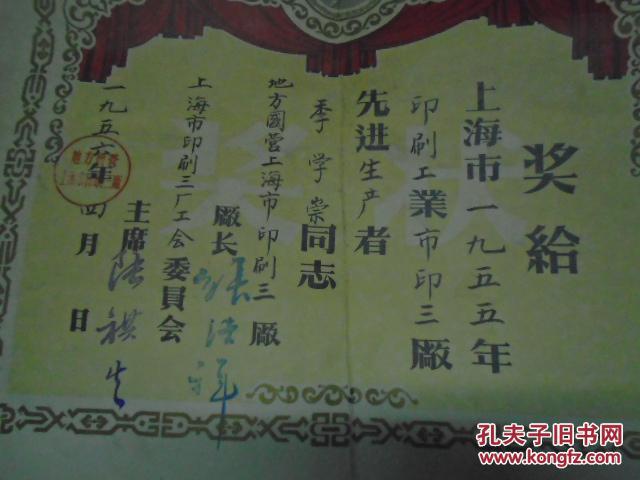 奖状
奖給
上海市一九五五年
印刷工業市印三廠
先进生产者
季学崇同志
地方國营上海市印刷三廠
廠长
上海市印刷三厂工会委員会
主席
一九五六年四月 日
孔夫子旧书网
www.kongfz.com